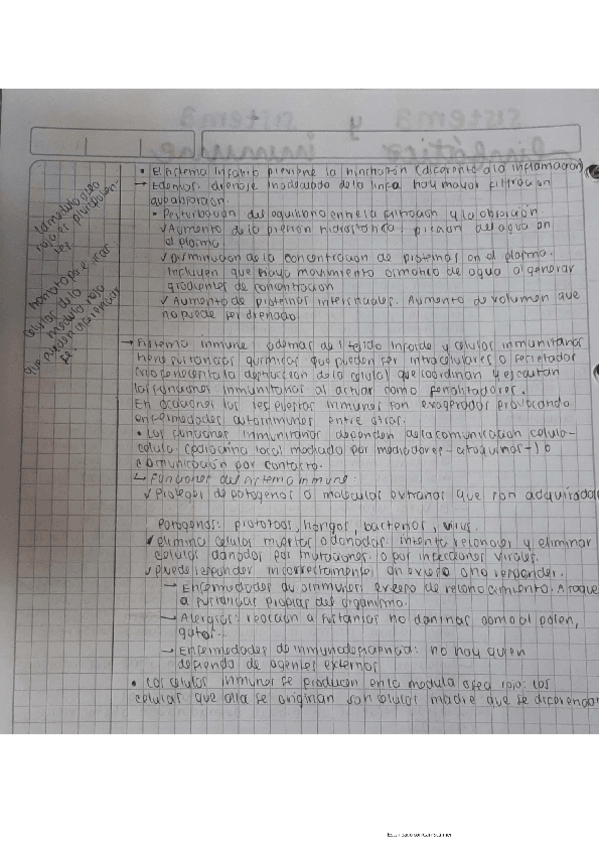 • El sistema linfatico previene la hinchazón (diferente a la inflamación)
→ Edemas: drenaje inadecuado de la linfa hay mayor filtración
que absorción.
• Perturbación del equilibrio entre la filtración y la absorción
✓ Aumento de la presión hidrostática: del agua en
el plasma
✓ Disminución de la concentración de proteinas en el plasma.
Incluyen que haya movimiento osmotico de agua al generar
gradientes de concentracion
✓ Aumento de proteinas intersticiales. Aumento de volumen que
no puede ser drenado
→ Sistema inmune: ademas del tejido linfoide y celulas inmunitarias
tiene sustancias quimicas que pueden ser intracelulares o secretadas
la destruccion de la celula) que coordinan y ejecutan
las funciones inmunitarias al actuar como señalizadores.
En ocasiones las respuestas inmunes son exageradas provocando
enfermedades autoinmunes entre otras.
• Las funciones inmunitarias dependen de la comunicación celula-
celula (paracrina local mediada por mediadores - citoquinas -) o
comunicación por contacto.
↳ Funciones del sistema inmune:
✓ Protege de patogenos o moleculas extrañas que son adquiridas
Patogenos: protozoos, hongos, bacterias, virus.
✓ elimina celulas muertas o dañadas: intenta reconocer y eliminar
celulas dañadas por mutaciones. o por infecciones virales.
✓ puede responder incorrectamente, en exceso o no responder.
→ Enfermedades autoinmunes: exceso de reconocimiento. Ataque
a sustancias propias del organismo.
→ Alergias: reacción a sustancias no dañinas como al polen,
gatos.
→ Enfermedades de inmunodeficiencia: no hay quien
defienda de agentes externos
• Las celulas inmunes se producen en la medula osea roja: las
celulas que alla se originan son celulas madre que se diferencian
la medula osea
roja es pluripoten-
te
hematopoyeticas
celulas de la
medula roja
que pueden diferenciar
se